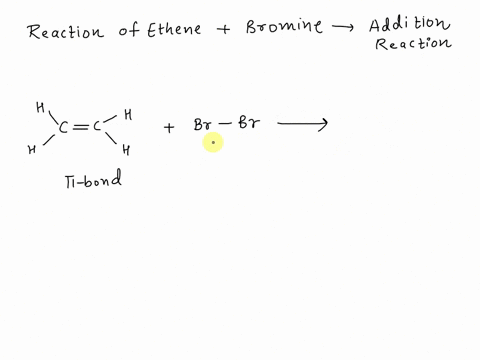 Reaction of Ethene + Bromine → Addition
Reaction
H H
C=C + Br-Br →
H H
π-bond